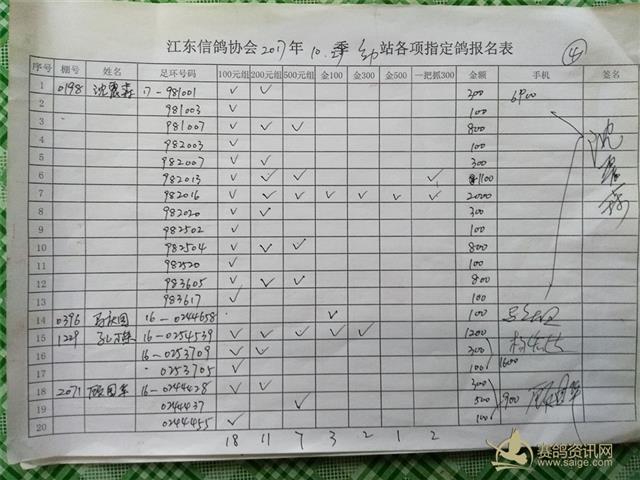 江东信鸽协会2017年10.季 幼站各项指定鸽报名表
④
序号 棚号 姓名 足环号码 100元组 200元组 500元组 金100 金300 金500 一把抓300 金额 手机 签名
1 0198 17-981001 ✓ ✓ 300 6900
2 981003 ✓ 100
3 981007 ✓ ✓ ✓ 800
4 982003 ✓ 100
5 982007 ✓ ✓ 300
6 982013 ✓ ✓ ✓ ✓ 1100
7 982016 ✓ ✓ ✓ ✓ ✓ ✓ ✓ 2000
8 982020 ✓ ✓ 300
9 982502 ✓ 100
10 982504 ✓ ✓ ✓ 800
11 982520 ✓ 100
12 983605 ✓ ✓ ✓ 800
13 983617 ✓ 100
14 0396 16-0244658 ✓ 100
15 1229 16-0254539 ✓ ✓ ✓ ✓ ✓ 1200
16 16-0253709 ✓ ✓ 300
17 0253705 ✓ 100 1600
18 2071 16-0244428 ✓ ✓ 300
19 0244437 ✓ 500 900
20 0244455 ✓ 100
18 11 7 3 2 1 2
赛鸽资讯网
www.saige.com